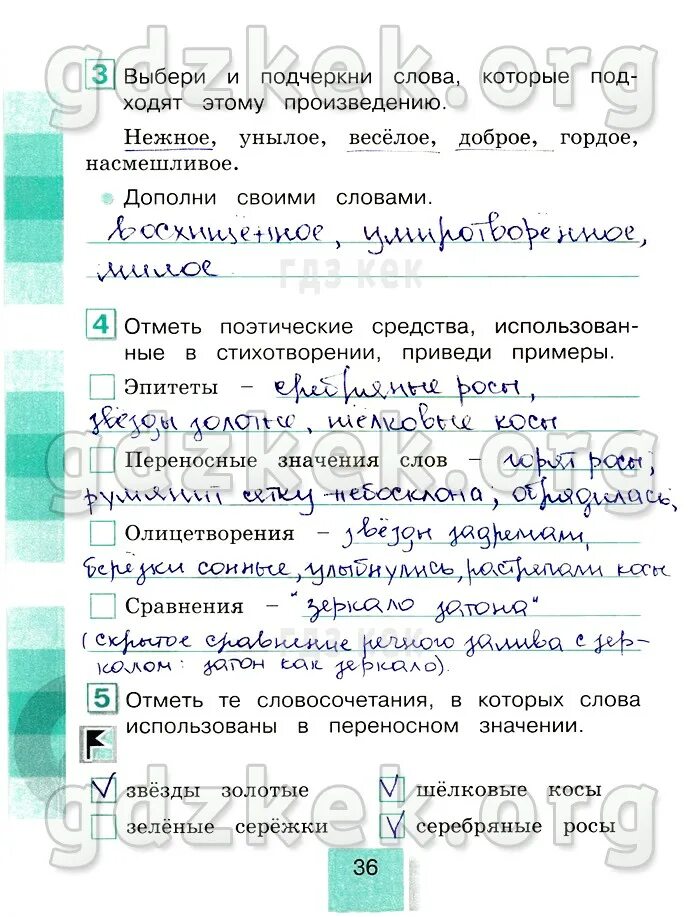 gdzkek.org
3 Выбери и подчеркни слова, которые под-
ходят этому произведению.
Нежное, унылое, весёлое, доброе, гордое,
насмешливое.
Дополни своими словами.
восхищённое, умиротворённое,
милое
гдз кек
4 Отметь поэтические средства, использован-
ные в стихотворении, приведи примеры.
Эпитеты – серебряные росы,
звёзды золотые, шёлковые косы
gdzkek.org
Переносные значения слов – горят росы;
румянит сетку небосклона; обрядилась;
Олицетворения – звёзды задремали,
берёзки сонные, улыбнулись, растрепали косы
Сравнения – "зеркало затона"
гдз кек
(скрытое сравнение речного залива с зер-
калом: затон как зеркало).
5 Отметь те словосочетания, в которых слова
использованы в переносном значении.
звёзды золотые шёлковые косы
gdzkek.org
зелёные серёжки серебряные росы
36